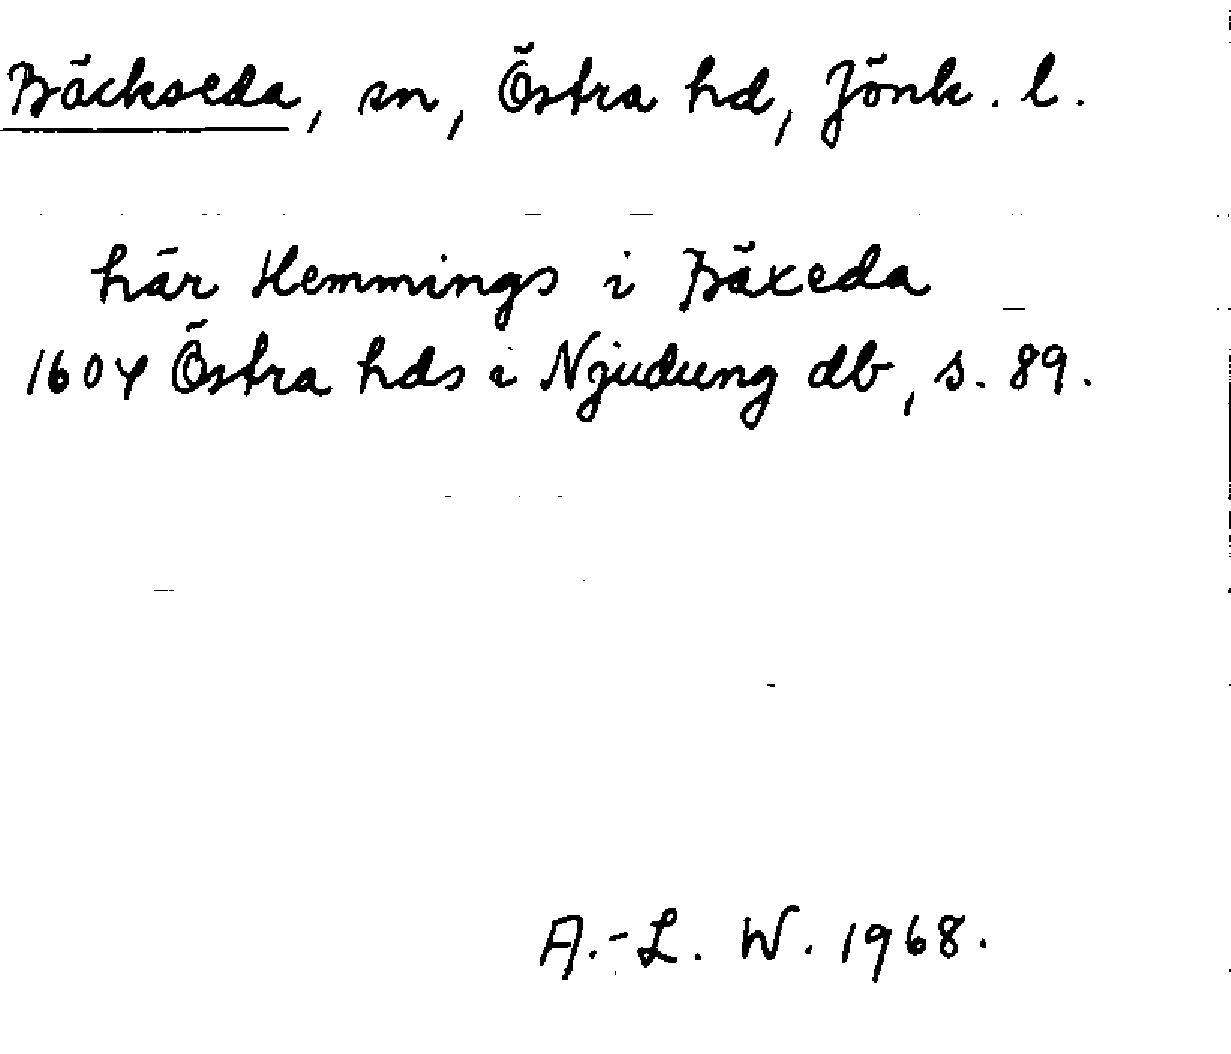 Bäckseda, sn, Östra hd, Jönk. l.
här Hemmings i Bäxeda
1604 Östra hds i Njudung db, s. 89.
A.-L. W. 1968.